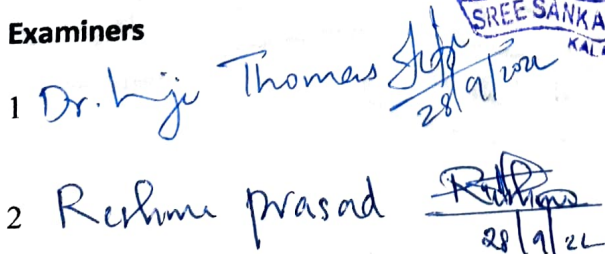 Examiners
SREE SANKA
KALA
1 Dr. Liji Thomas
28/9/2022
2 Reshma Prasad
28/9/22